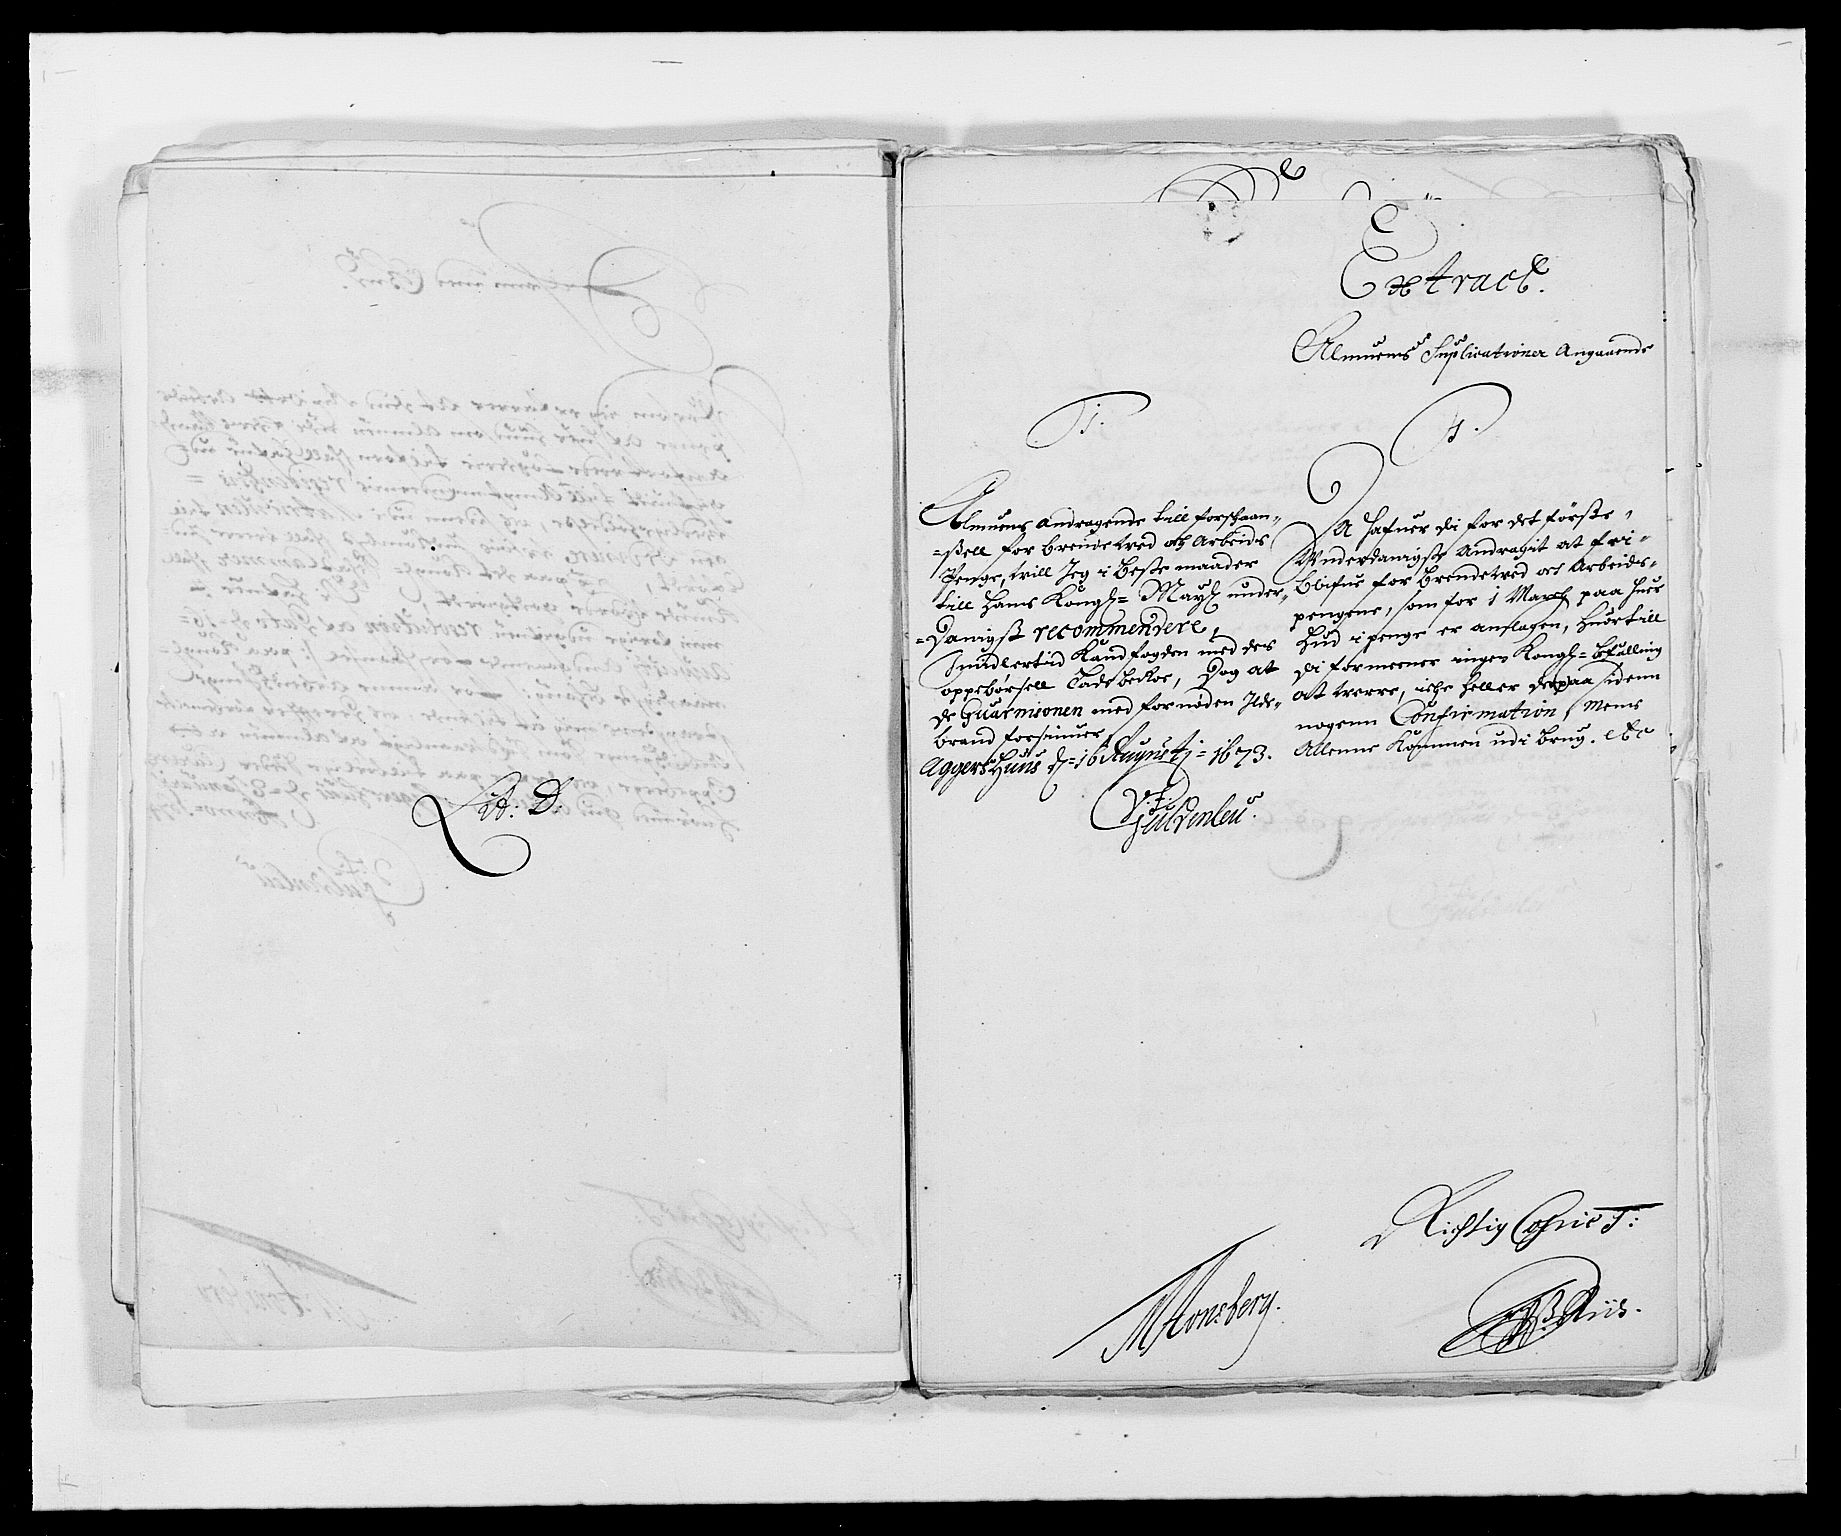 Lit: D:
Extract.
Almuens Suplicationer Angaaende
1.
Almuens andragende till forschaan-
=sell for brendeved och Arbeids
Penge, vill Jeg i beste maader
till Hans Kongl= Mayt under-
=Danigst recommendere,
Imidlertid Kand fogden med des
oppebørsell Lade beroe, Dog at
de Guarnisonen med fornøden Ilde-
brand forsiuner,
Aggers Huus d=16 Augusti= 1673.
Gyldenleu.
4.
Da Hafuer di for det første,
Underdanigste Andragit at fri-
blifue for brendeved och Arbeids-
pengene, som for 1 March paa huer
hud i penge er anslagen, huortill
di formeener ingen Kongl= befalling
at verre, iche heller der paa sidenn
nogenn Confirmation, Mens
Allenne Kommen udi brug. etc
Richtig Copie T:
MTonsberg.
Riis.